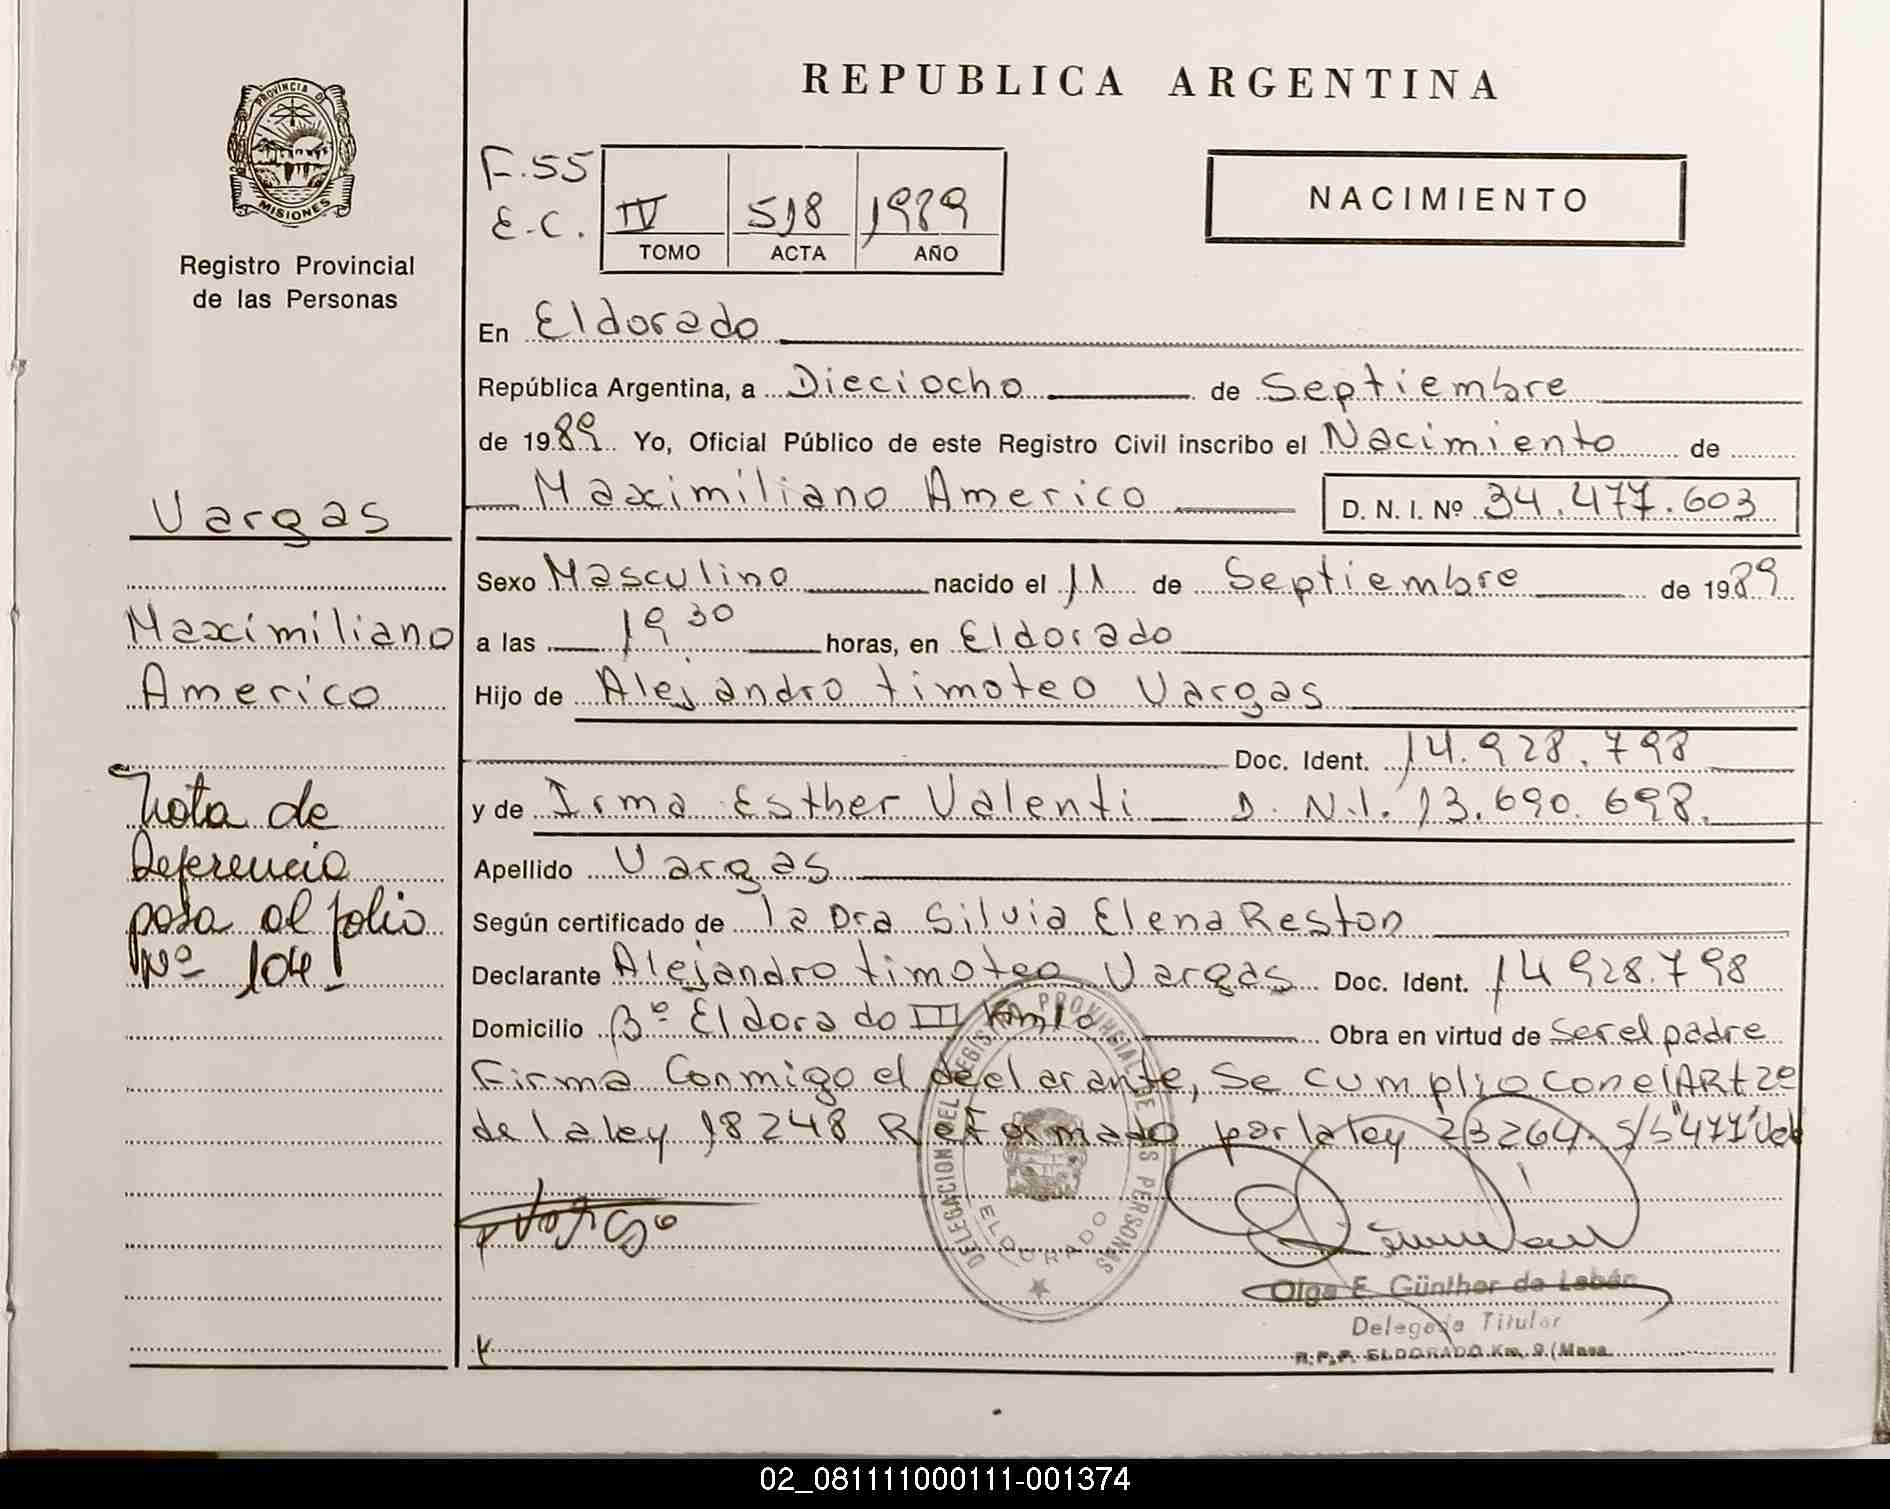 REPUBLICA ARGENTINA
PROVINCIA DE
MISIONES
Registro Provincial
de las Personas
F. 55
E.C.
IV 518 1989
TOMO ACTA AÑO
NACIMIENTO
En Eldorado
República Argentina, a Dieciocho de Septiembre
de 1989 Yo, Oficial Público de este Registro Civil inscribo el Nacimiento de
Maximiliano Americo D. N. I. Nº 34.477.603
Vargas
Maximiliano
Americo
Nota de
Referencia
pasa al folio
Nº 104
Sexo Masculino nacido el 11 de Septiembre de 1989
a las 19 30 horas, en Eldorado
Hijo de Alejandro timoteo Vargas
Doc. Ident. 14.928.798
y de Irma Esther Valenti D.N.I. 13.690.698.
Apellido Vargas
Según certificado de la Dra Silvia Elena Reston
Declarante Alejandro timoteo Vargas Doc. Ident. 14 928.798
Domicilio Bº Eldorado III Km10 Obra en virtud de Ser el padre
Firma Conmigo el declarante, Se cumplio con el ARt 2º
de la ley 18248 Reformado por la ley 23264. S/S "477" Vale
DELEGACION DEL REGISTRO PROVINCIAL DE LAS PERSONAS
ELDORADO
Olga E. Günther de Lebán
Delegada Titular
R.P.P. ELDORADO Km. 9 (Mnes.
02_081111000111-001374